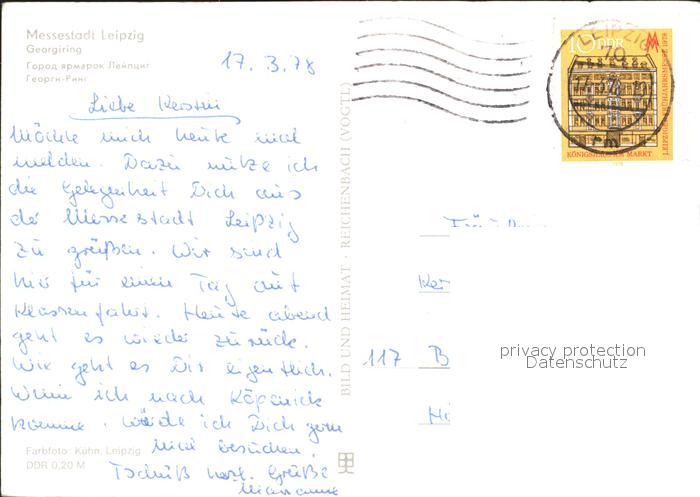 Messestadt Leipzig
Georgiring
Город ярмарок Лейпциг
Георги-Ринг
17.3.78
Liebe Kerstin
Möchte mich heute mal
melden. Dazu nütze ich
die Gelegenheit Dich aus
der Messestadt Leipzig
zu grüßen. Wir sind
hier für einen Tag auf
Klassenfahrt. Heute abend
geht es wieder zurück.
Wie geht es Dir eigentlich.
Wenn ich nach Köpenick
komme, würde ich Dich gern
mal besuchen.
Tschüß herzl. Grüße
Marianne
Farbfoto: Kühn, Leipzig
DDR 0,20 M
BILD UND HEIMAT · REICHENBACH (VOGTL)
10 DDR
LEIPZIGER FRÜHJAHRSMESSE 1978
KÖNIGSHAUS AM MARKT
LEIPZIG
70
Ker
117 B
privacy protection
Datenschutz